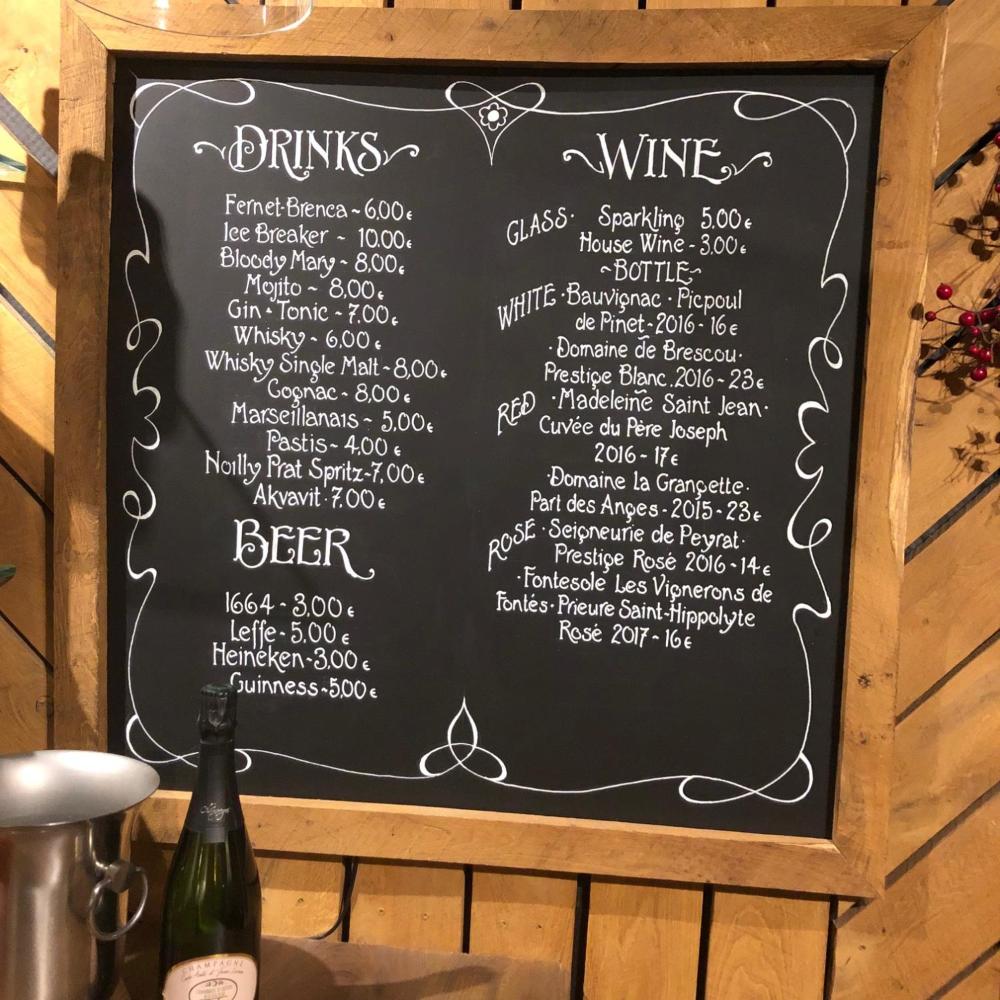 DRINKS
Fernet-Brenca ~ 6,00€
Ice Breaker ~ 10.00€
Bloody Mary ~ 8,00€
Mojito ~ 8,00€
Gin • Tonic ~ 7,00€
Whisky ~ 6,00€
Whisky Single Malt ~ 8,00€
Cognac ~ 8,00€
Marseillanais ~ 5,00€
Pastis ~ 4.00€
Noilly Prat Spritz-7,00€
Akvavit · 7.00€
BEER
1664 - 3,00€
Leffe - 5,00€
Heineken-3,00€
Guinness~5,00€
WINE
GLASS· Sparkling 5.00€
House Wine - 3,00€
~BOTTLE~
WHITE ·Bauvignac · Picpoul
de Pinet-2016-16€
·Domaine de Brescou·
Prestige Blanc.2016-23€
RED ·Madeleine Saint Jean·
Cuvée du Père Joseph
2016-17€
·Domaine la Grangette·
Part des Anges-2015-23€
ROSÉ ·Seigneurie de Peyrat·
Prestige Rosé 2016-14€
·Fontesole Les Vignerons de
Fontés·Prieure Saint-Hippolyte
Rosé 2017-16€
CHAMPAGNE